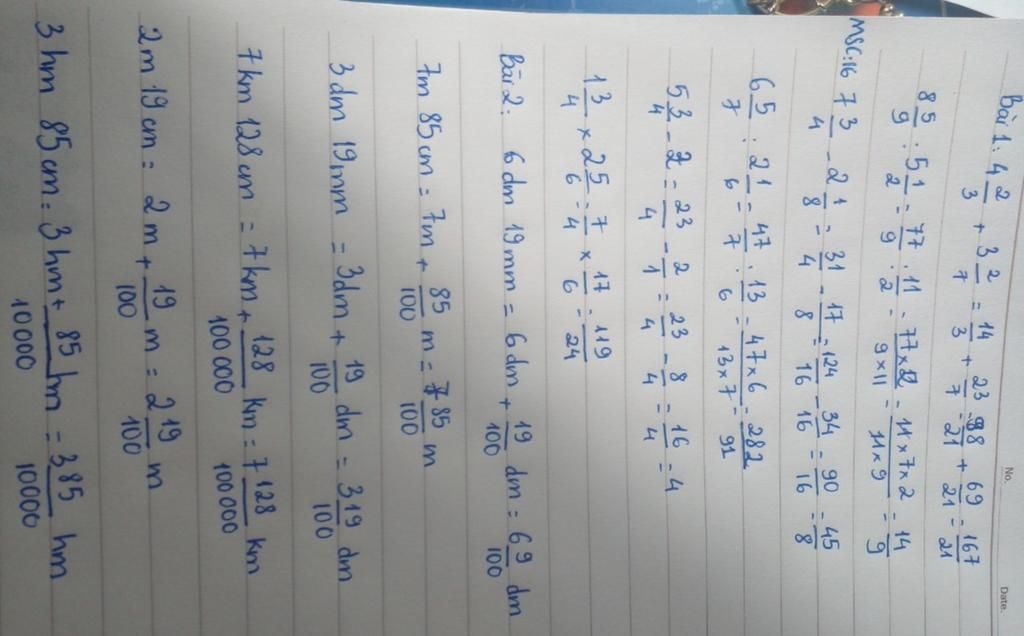 No. Date.
Bài 1: 4 2/3 + 3 2/7 = 14/3 + 23/7 = 98/21 + 69/21 = 167/21
8 5/9 : 5 1/2 = 77/9 : 11/2 = 77×2/9×11 = 11×7×2/11×9 = 14/9
MSC:16 7 3/4 - 2 1/8 = 31/4 - 17/8 = 124/16 - 34/16 = 90/16 = 45/8
6 5/7 : 2 1/6 = 47/7 : 13/6 = 47×6/13×7 = 282/91
5 3/4 - 2 = 23/4 - 2/1 = 23/4 - 8/4 = 16/4 = 4
1 3/4 × 2 5/6 = 7/4 × 17/6 = 119/24
Bài 2: 6dm 19mm = 6dm + 19/100 dm = 6 9/100 dm
7m 85cm = 7m + 85/100 m = 7 85/100 m
3dm 19mm = 3dm + 19/100 dm = 3 19/100 dm
7km 128cm = 7km + 128/100 000 km = 7 128/100 000 km
2m 19cm = 2m + 19/100 m = 2 19/100 m
3hm 85cm = 3hm + 85/10000 hm = 3 85/10000 hm